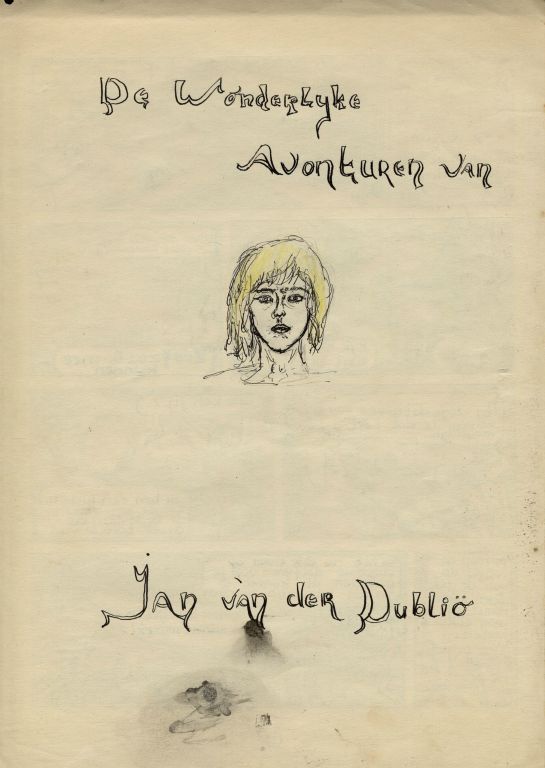 De Wonderlyke
Avonturen van
Jan van der Dubliö